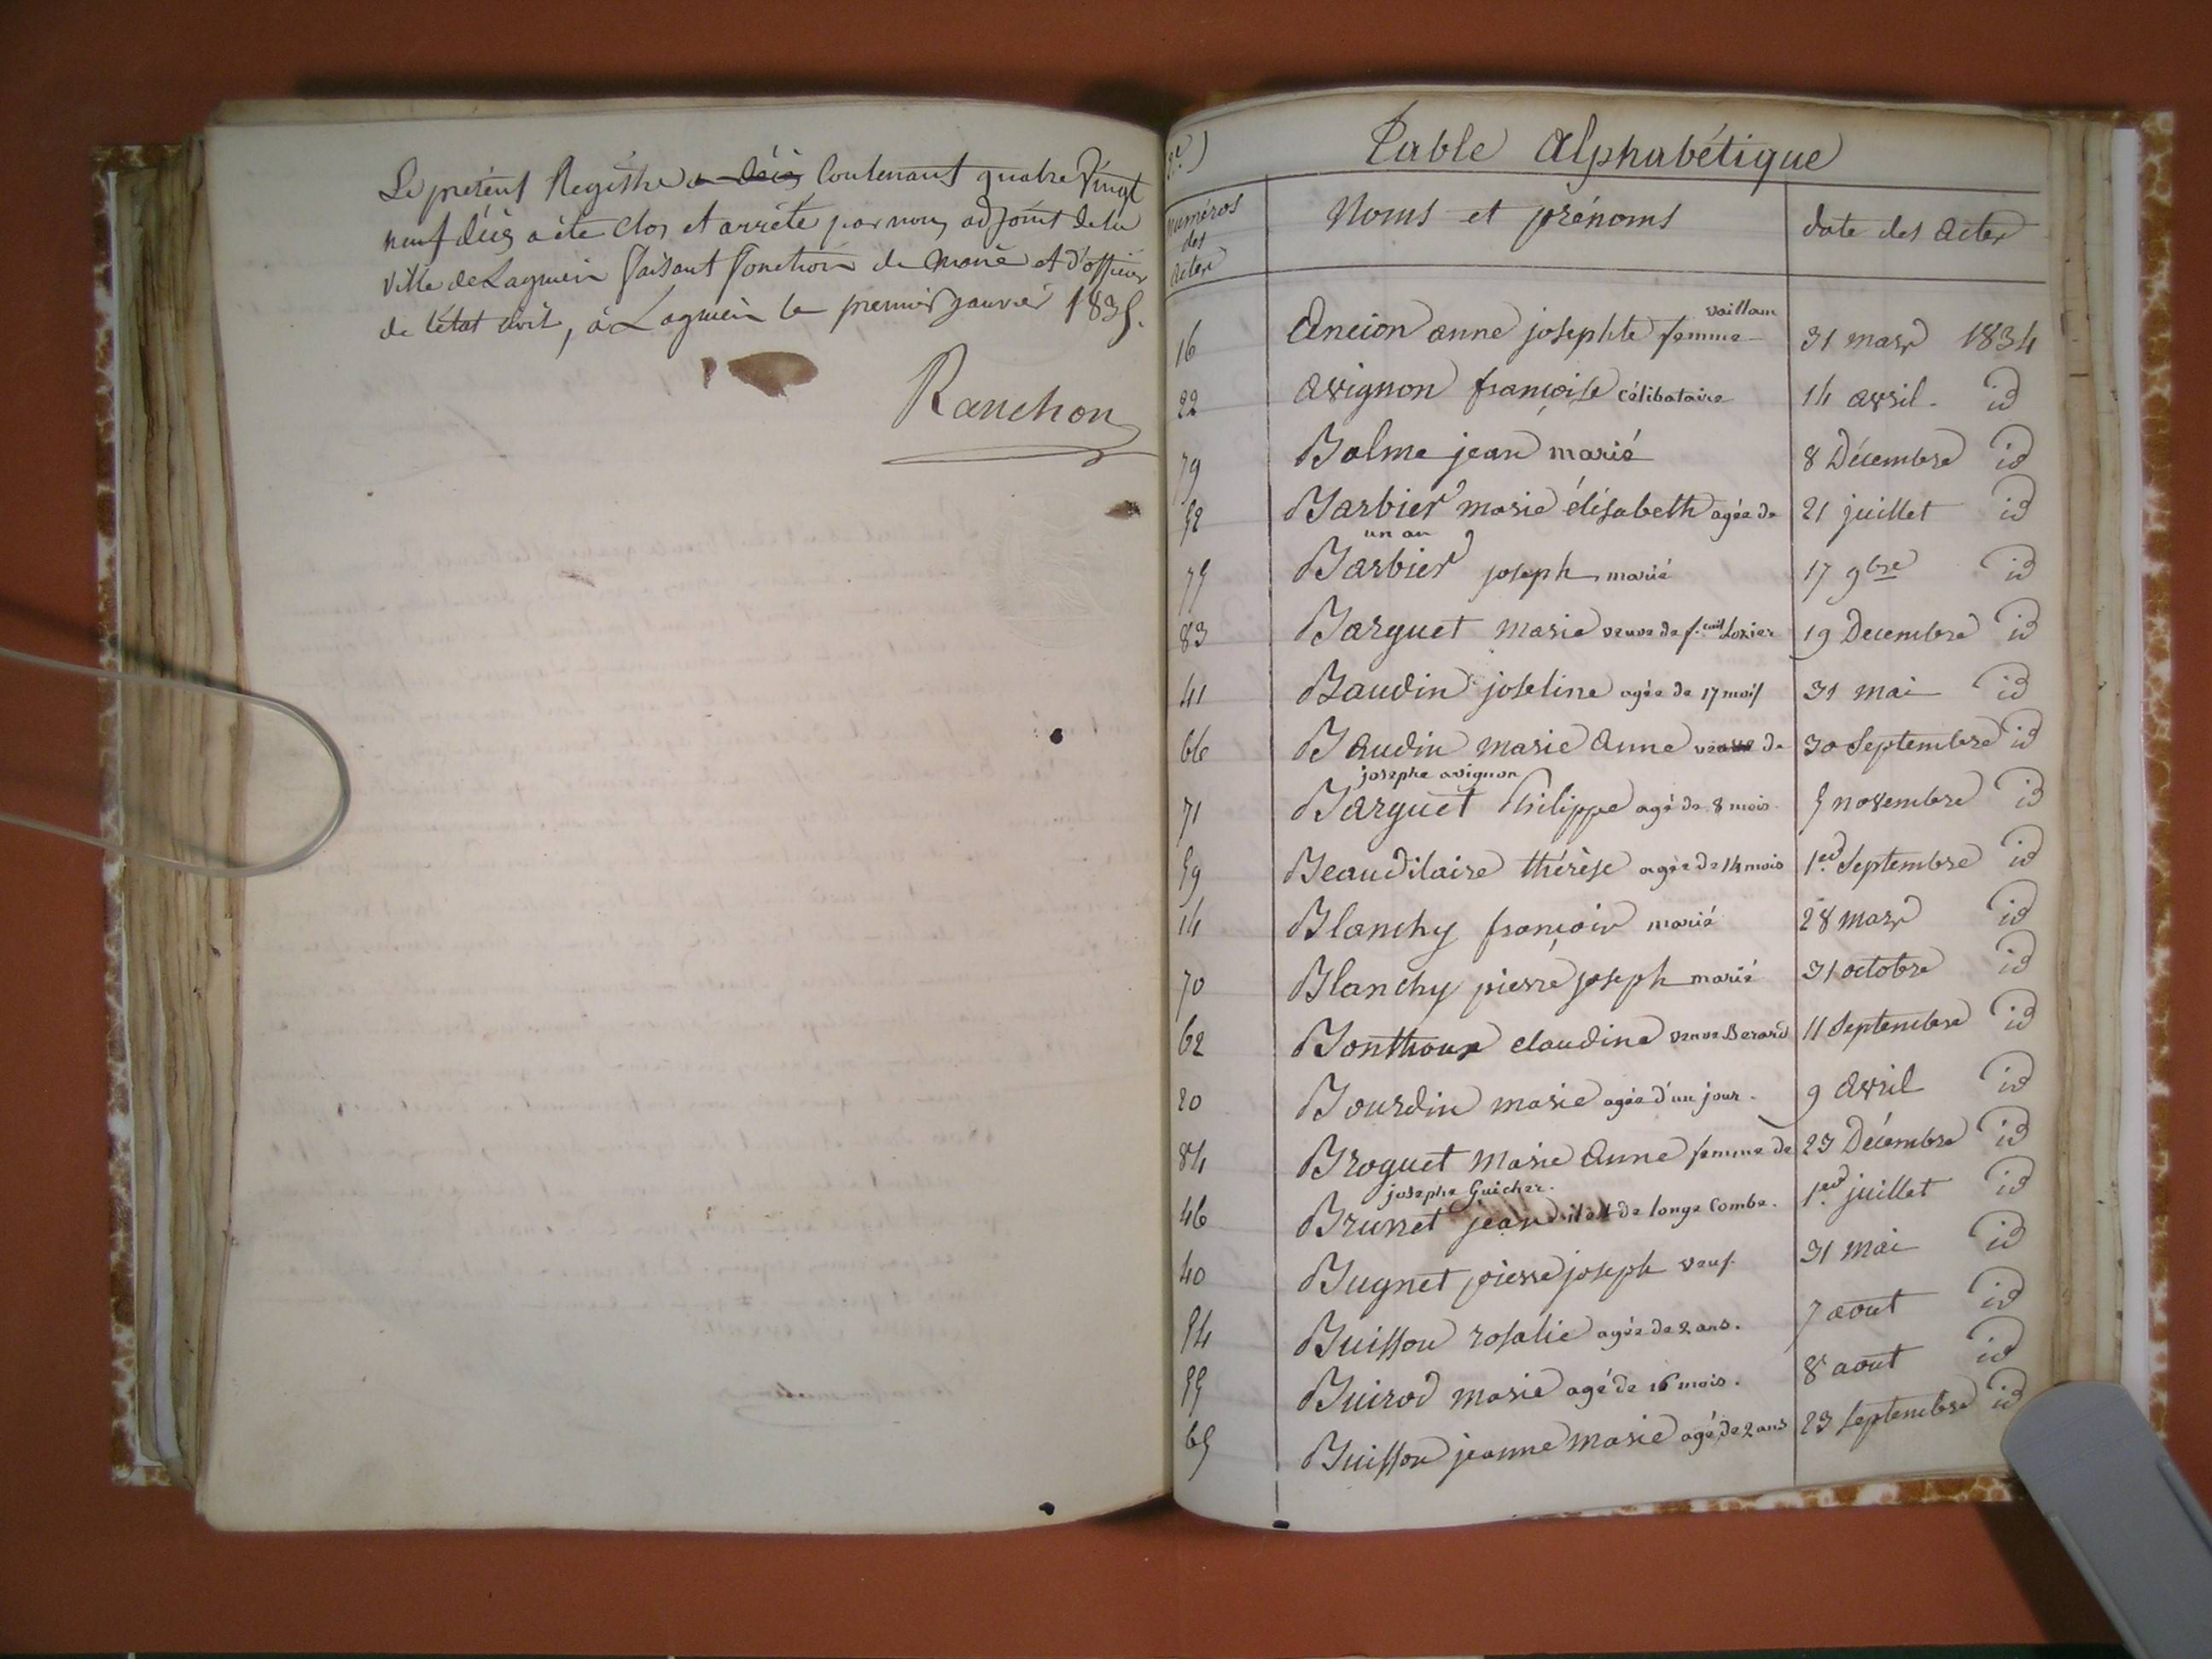 Le présent Registre a été Contenant quatre Vingt
neuf décès a été clos et arrêté par nous adjoint de la
ville de Lagnieu faisant fonction de Maire et d'officier
de l'état civil, à Lagnieu le premier janvier 1835.
Ranchon
Table Alphabétique
numéros des actes | Noms et prénoms | date des actes
vaillan
16 Ancion anne josephte femme 31 mars 1834
22 Avignon françoise célibataire 14 avril id
79 Balme jean marié 8 Décembre id
52 Barbier marie élisabeth agée de 21 juillet id
un an
75 Barbier joseph marié 17 9bre id
83 Barquet marie veuve de Lozier 19 Decembre id
41 Baudin joseline agée de 17 mois 31 mai id
66 Baudin marie Anne veuve de 30 Septembre id
josephe avignon
71 Barquet Philippe agé de 8 mois 5 novembre id
59 Beaudilaire thérèse agée de 14 mois 1er Septembre id
14 Blanchy françois marié 28 mars id
70 Blanchy pierre joseph marié 31 octobre id
62 Bonthoux claudine veuve Berard 11 Septembre id
20 Bourdin marie agée d'un jour. 9 Avril id
84 Broquet Marie Anne femme de 23 Décembre id
josephe Guicher.
46 Brunet jean il est de longe Combe. 1er juillet id
40 Bugnet pierre joseph veuf 31 Mai id
54 Buisson rosalie agée de 2 ans. 7 aout id
55 Buirod marie agé de 16 mois. 8 aout id
65 Buisson jeanne marie agé de 2 ans 23 Septembre id